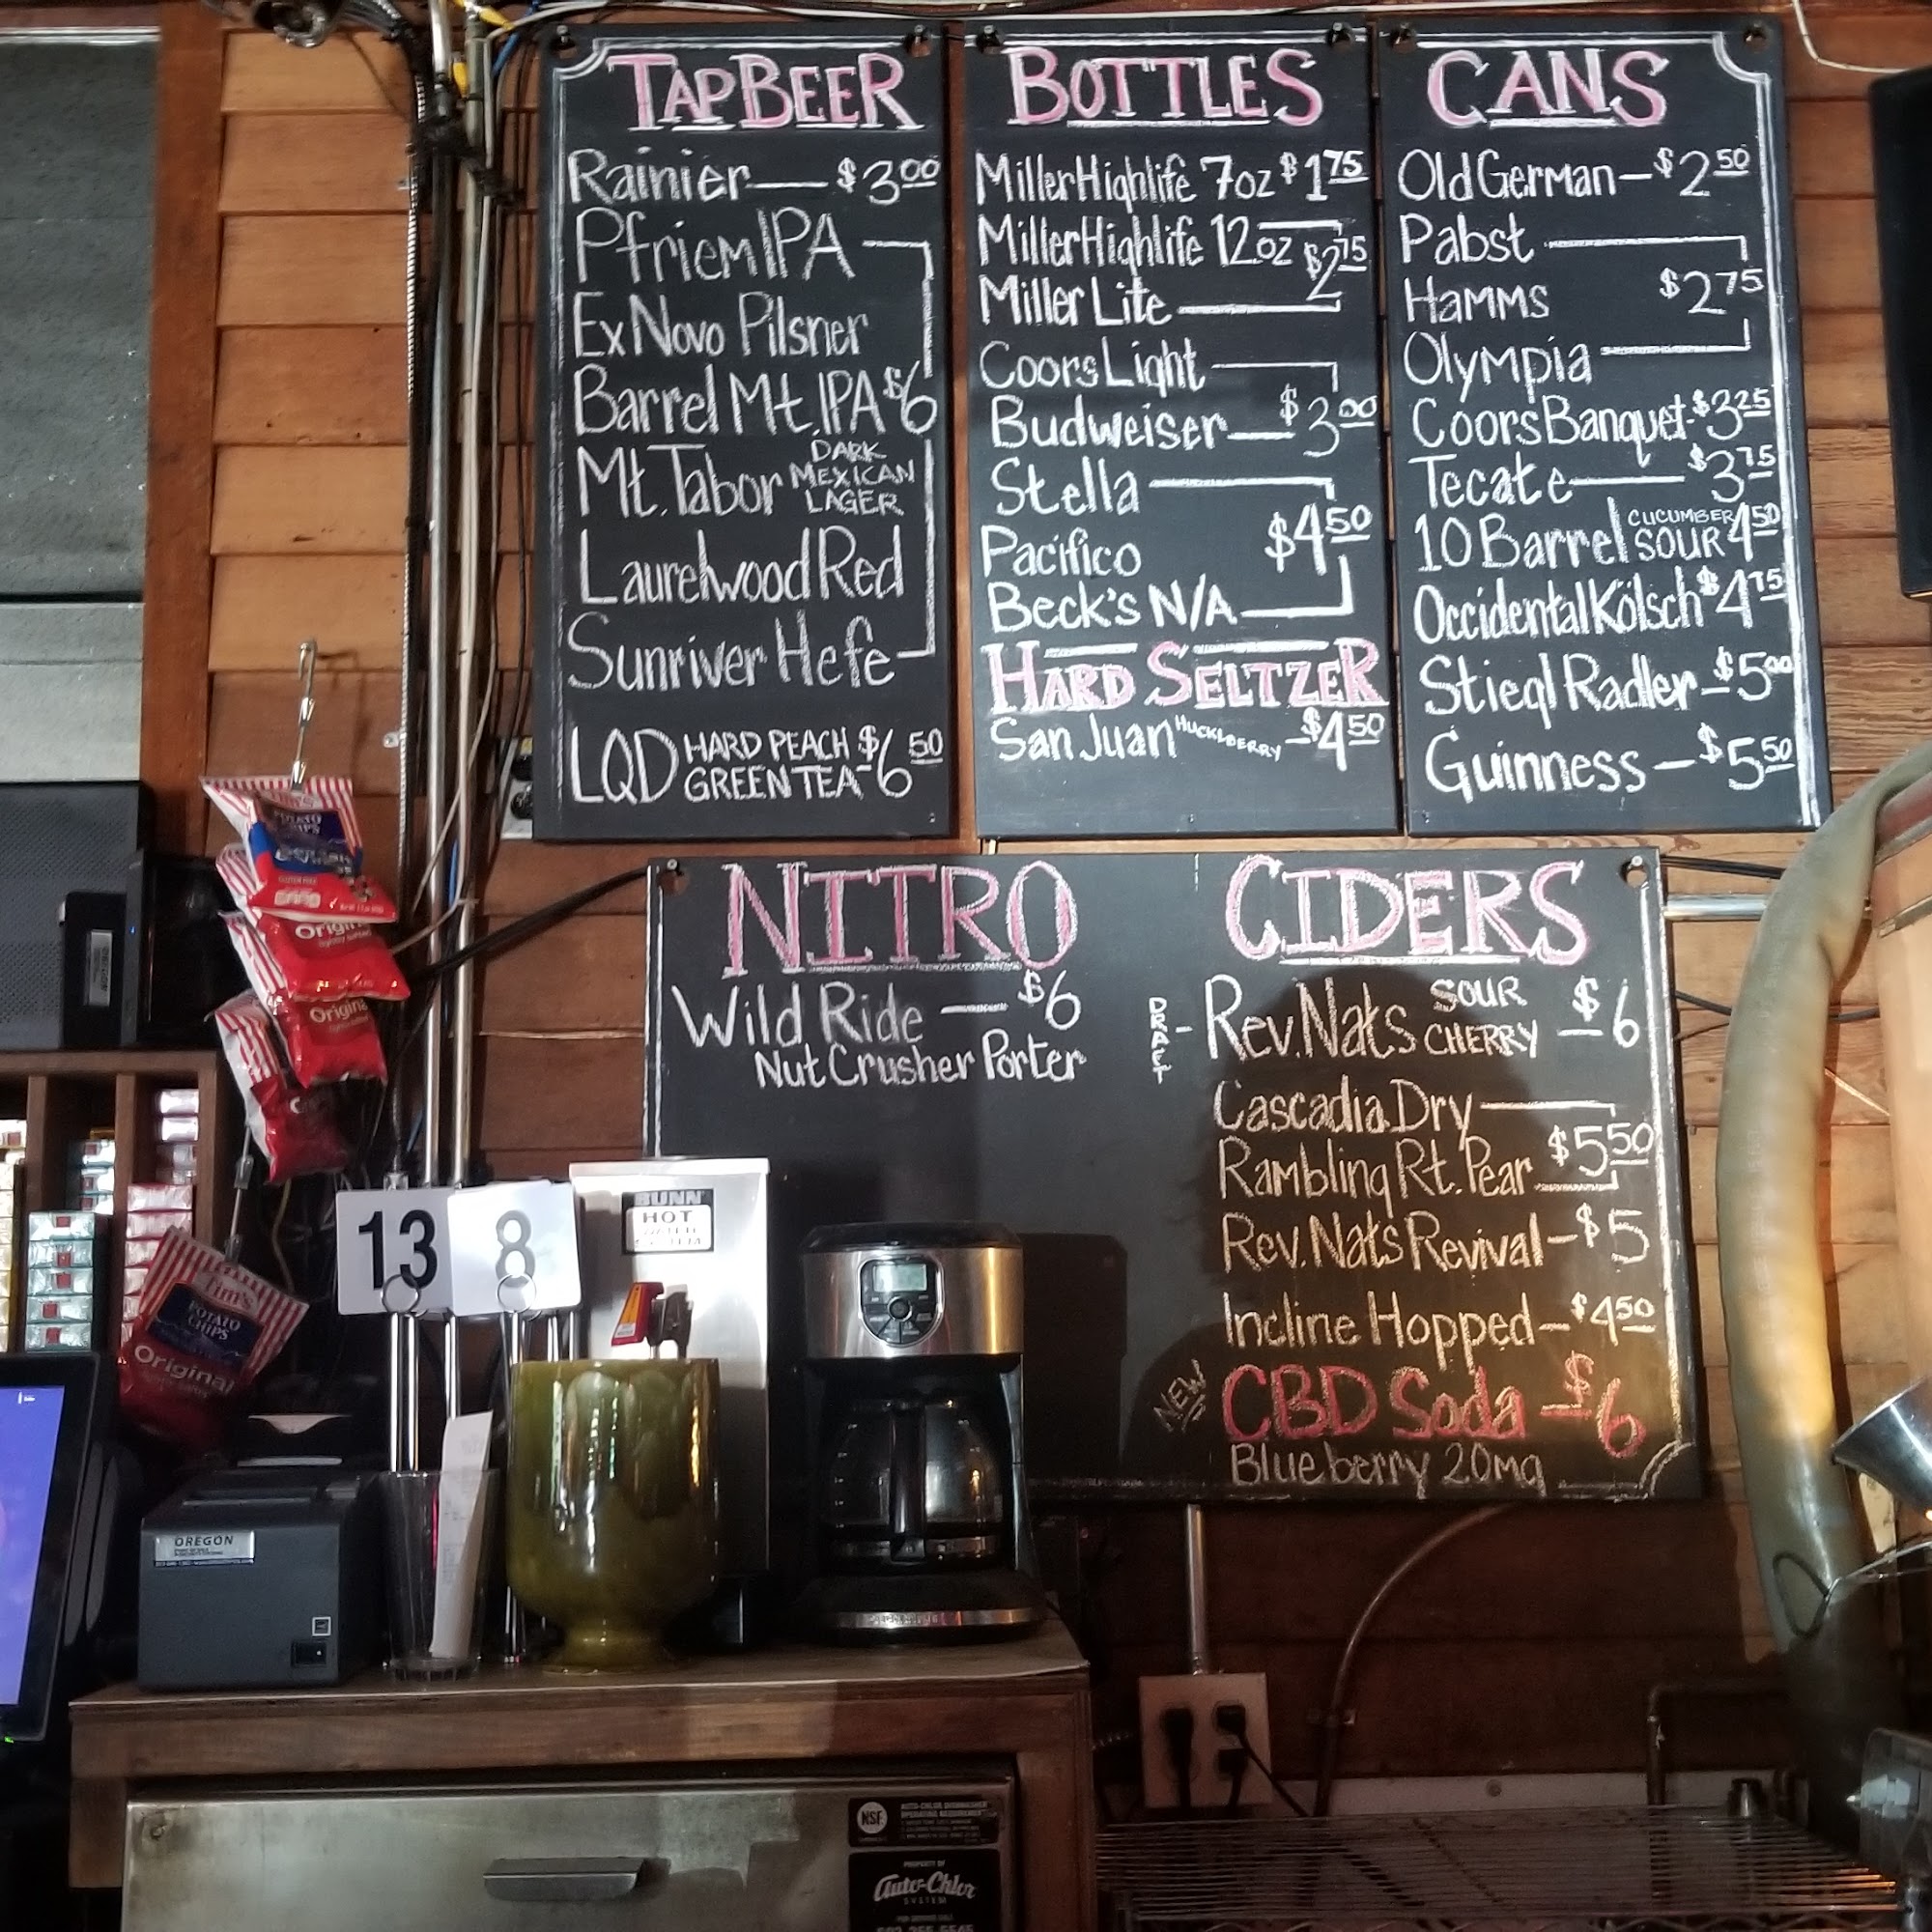 TAP BEER
Rainier — $3.00
Pfriem IPA
Ex Novo Pilsner
Barrel Mt. IPA $6
Mt. Tabor DARK MEXICAN LAGER
Laurelwood Red
Sunriver Hefe
LQD HARD PEACH GREEN TEA $6.50
BOTTLES
Miller Highlife 7oz $1.75
Miller Highlife 12oz $2.75
Miller Lite
Coors Light
Budweiser — $3.00
Stella
Pacifico $4.50
Beck's N/A
HARD SELTZER
San Juan HUCKLBERRY - $4.50
CANS
Old German - $2.50
Pabst
Hamms $2.75
Olympia
Coors Banquet - $3.25
Tecate — $3.75
10 Barrel CUCUMBER SOUR 4.50
Occidental Kölsch $4.75
Stiegl Radler - $5.00
Guinness - $5.50
NITRO
Wild Ride — $6
Nut Crusher Porter
CIDERS
DRAFT - Rev. Nats SOUR CHERRY - $6
Cascadia Dry
Rambling Rt. Pear $5.50
Rev. Nats Revival - $5
Incline Hopped - $4.50
NEW CBD Soda - $6
Blueberry 20mg
POTATO
CHIPS
Original
Original
13
8
BUNN
HOT
WATER
SYSTEM
Tim's
POTATO
CHIPS
Original
OREGON
NSF
AUTO-CHLOR DISHWASHER
OPERATING REQUIREMENTS
PROPERTY OF
Auto-Chlor
SYSTEM